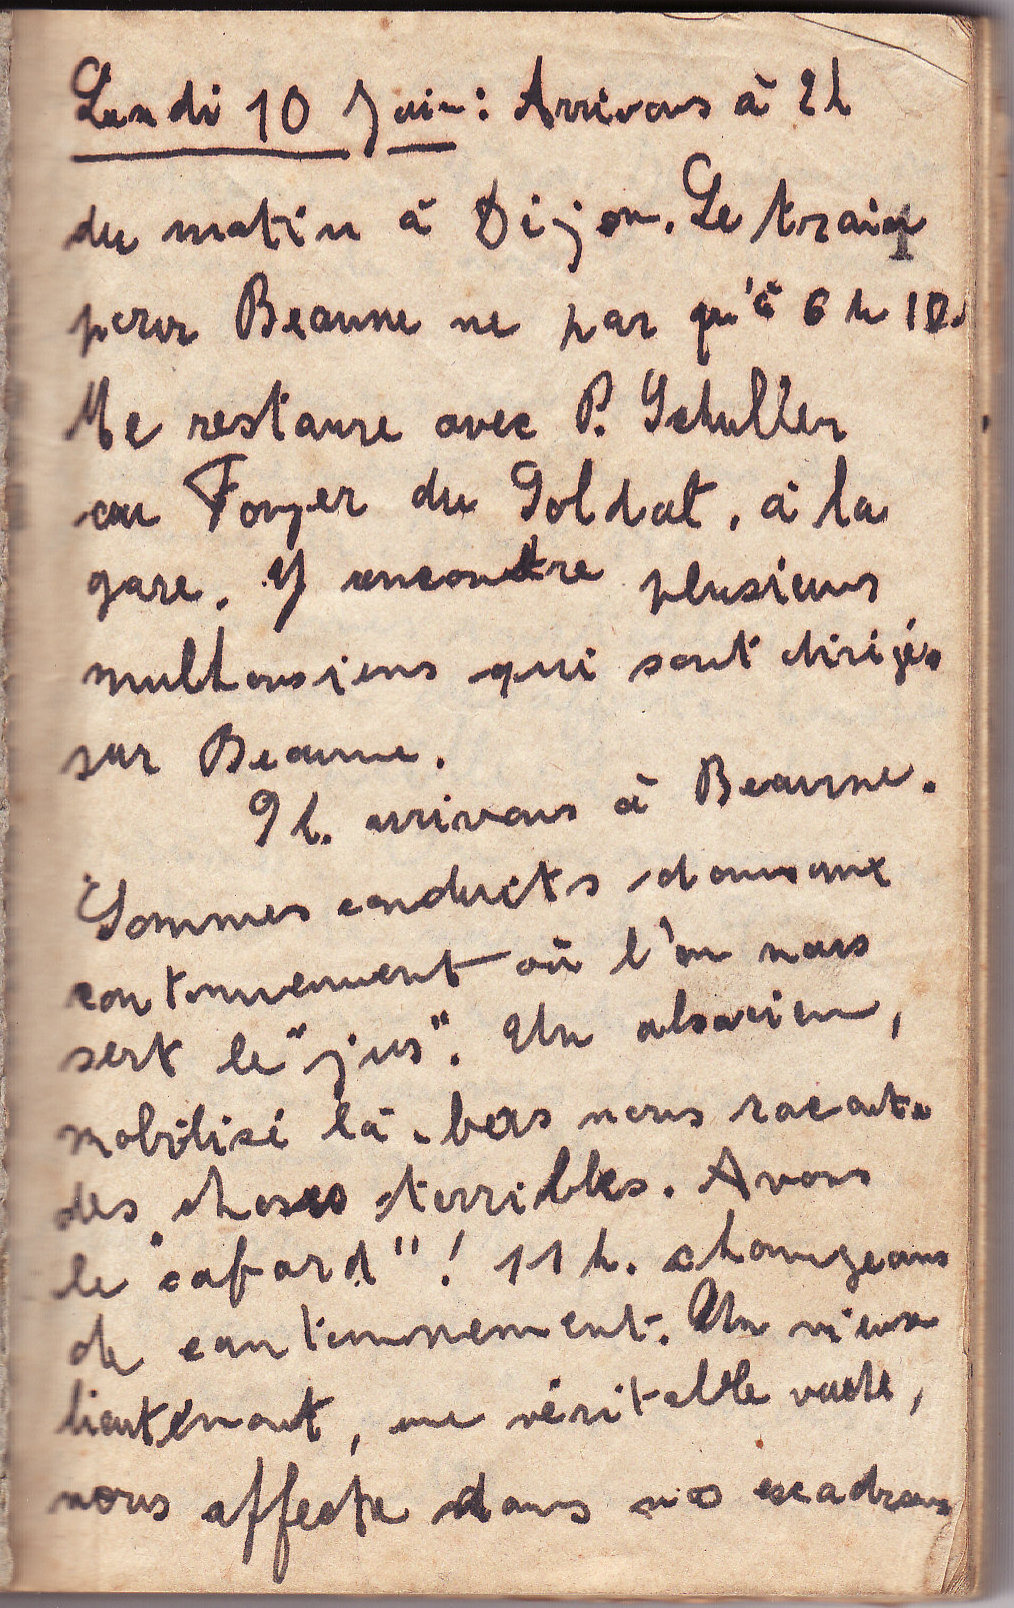 Lundi 10 Juin : Arrivons à 2h
du matin à Dijon. Le train
pour Beaune ne par qu'à 6 h 10.
Me restaure avec P. Schuller
au Foyer du Soldat, à la
gare. Y rencontre plusieurs
mulhousiens qui sont dirigés
sur Beaune.
9h. arrivons à Beaune.
Sommes conduits dans une
cantonnement où l'on nous
sert le "jus". Un alsacien,
mobilisé là-bas nous raconte
des choses terribles. Avons
le "cafard" ! 11 h. changeons
de cantonnement. Un vieux
lieutenant, une véritable vache,
nous affecte dans nos escadrons